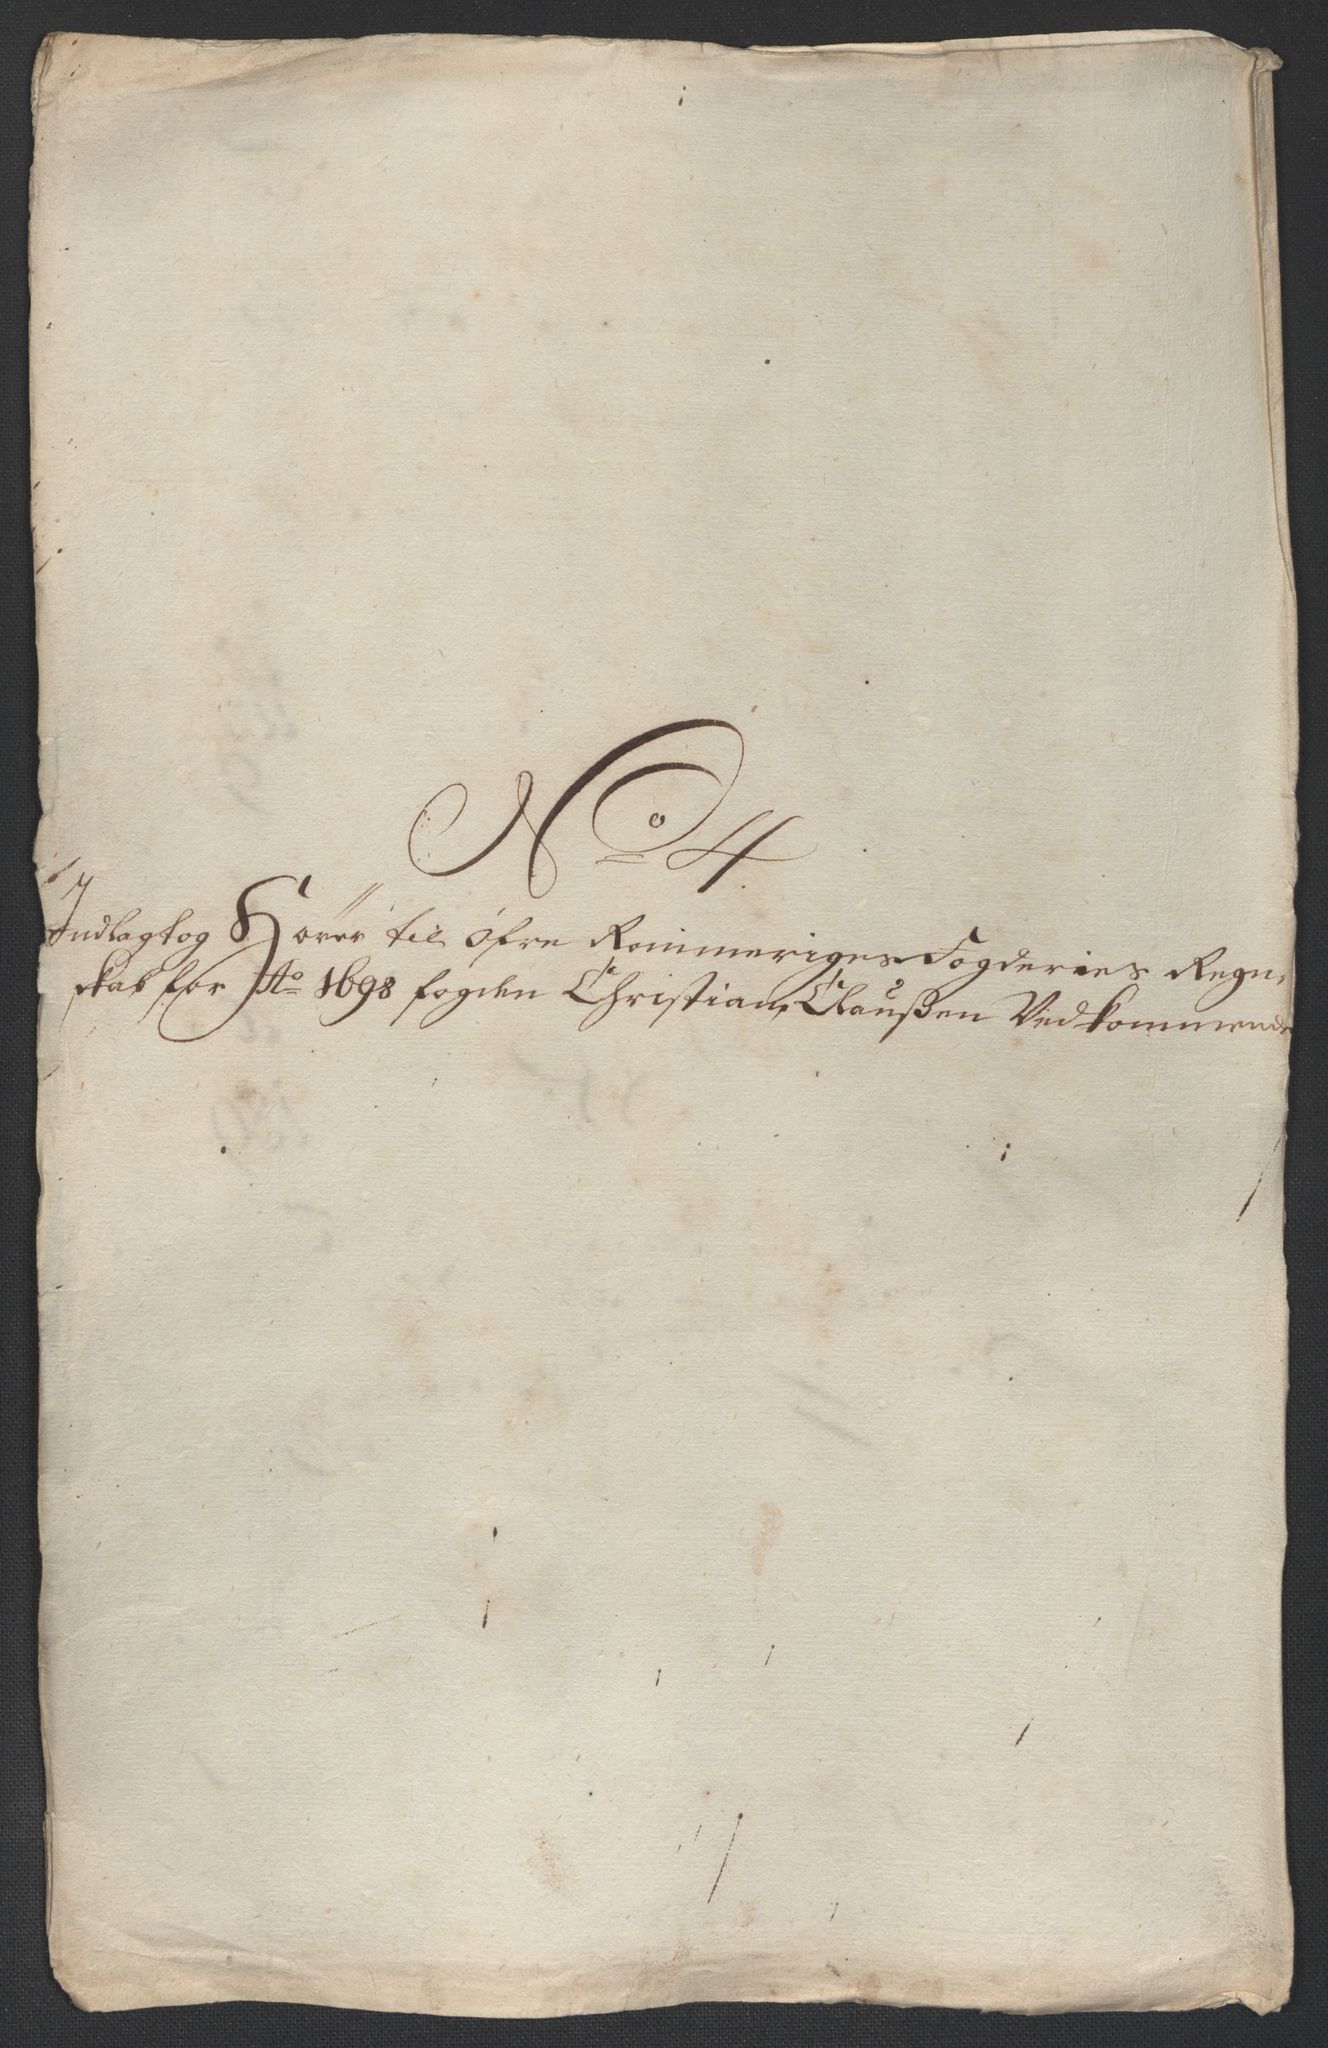 No 4
Indlagtog Hører til Øfre Rommeriges Fogderies Regn,
skab for Ao 1698 fogden Christian Claußen Vedkommende